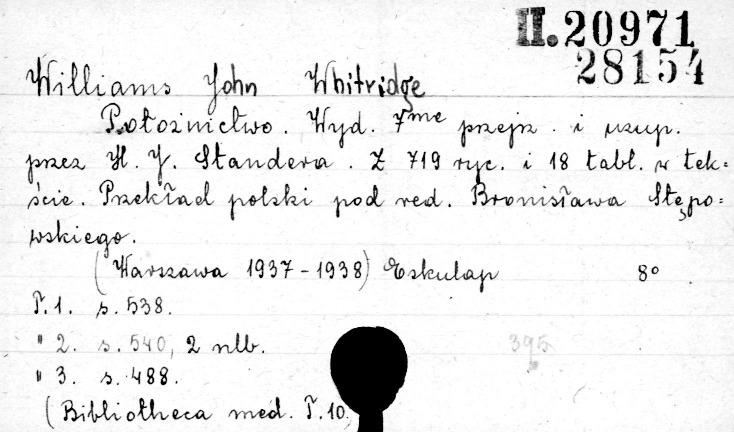 II. 20971
28154
Williams John Whitridge
Położnictwo. Wyd. 7me przejrz. i uzup.
przez H. J. Standera. Z 719 ryc. i 18 tabl. w tek=
ście. Przekład polski pod red. Bronisława Stępo=
wskiego.
(Warszawa 1937-1938) Eskulap 8°
T. 1. s. 538.
" 2. s. 540, 2 nlb. 395
" 3. s. 488.
(Bibliotheca med. T. 10)